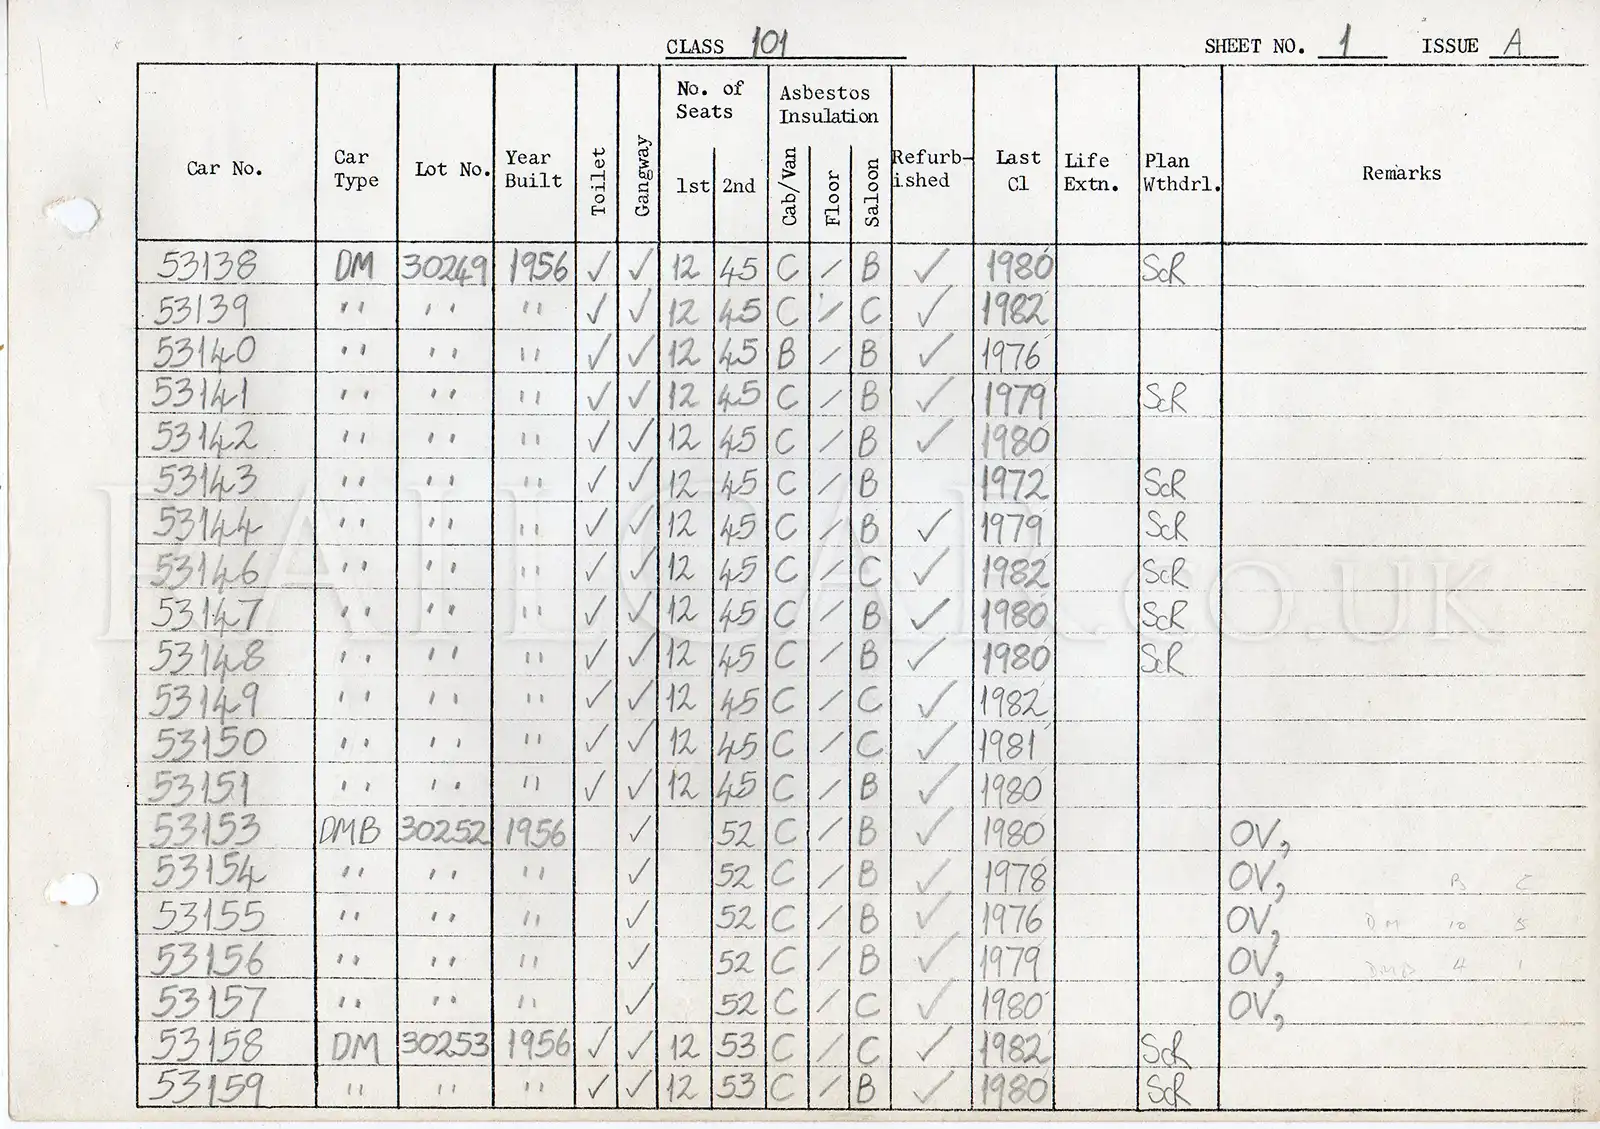 CLASS 101 SHEET NO. 1 ISSUE A
Car No. Car Type Lot No. Year Built Toilet Gangway No. of Seats 1st 2nd Asbestos Insulation Cab/Van Floor Saloon Refurb-ished Last Cl Life Extn. Plan Wthdrl. Remarks
53138 DM 30249 1956 ✓ ✓ 12 45 C / B ✓ 1980 ScR
53139 " " " ✓ ✓ 12 45 C / C ✓ 1982
53140 " " " ✓ ✓ 12 45 B / B ✓ 1976
53141 " " " ✓ ✓ 12 45 C / B ✓ 1979 ScR
53142 " " " ✓ ✓ 12 45 C / B ✓ 1980
53143 " " " ✓ ✓ 12 45 C / B 1972 ScR
53144 " " " ✓ ✓ 12 45 C / B ✓ 1979 ScR
53146 " " " ✓ ✓ 12 45 C / C ✓ 1982 ScR
53147 " " " ✓ ✓ 12 45 C / B ✓ 1980 ScR
53148 " " " ✓ ✓ 12 45 C / B ✓ 1980 ScR
53149 " " " ✓ ✓ 12 45 C / C ✓ 1982
53150 " " " ✓ ✓ 12 45 C / C ✓ 1981
53151 " " " ✓ ✓ 12 45 C / B ✓ 1980
53153 DMB 30252 1956 ✓ 52 C / B ✓ 1980 OV,
53154 " " " ✓ 52 C / B ✓ 1978 OV, B C
53155 " " " ✓ 52 C / B ✓ 1976 OV, DM 10 5
53156 " " " ✓ 52 C / B ✓ 1979 OV, DMB 4 1
53157 " " " ✓ 52 C / C ✓ 1980 OV,
53158 DM 30253 1956 ✓ ✓ 12 53 C / C ✓ 1982 ScR
53159 " " " ✓ ✓ 12 53 C / B ✓ 1980 ScR
RAILCAR.CO.UK